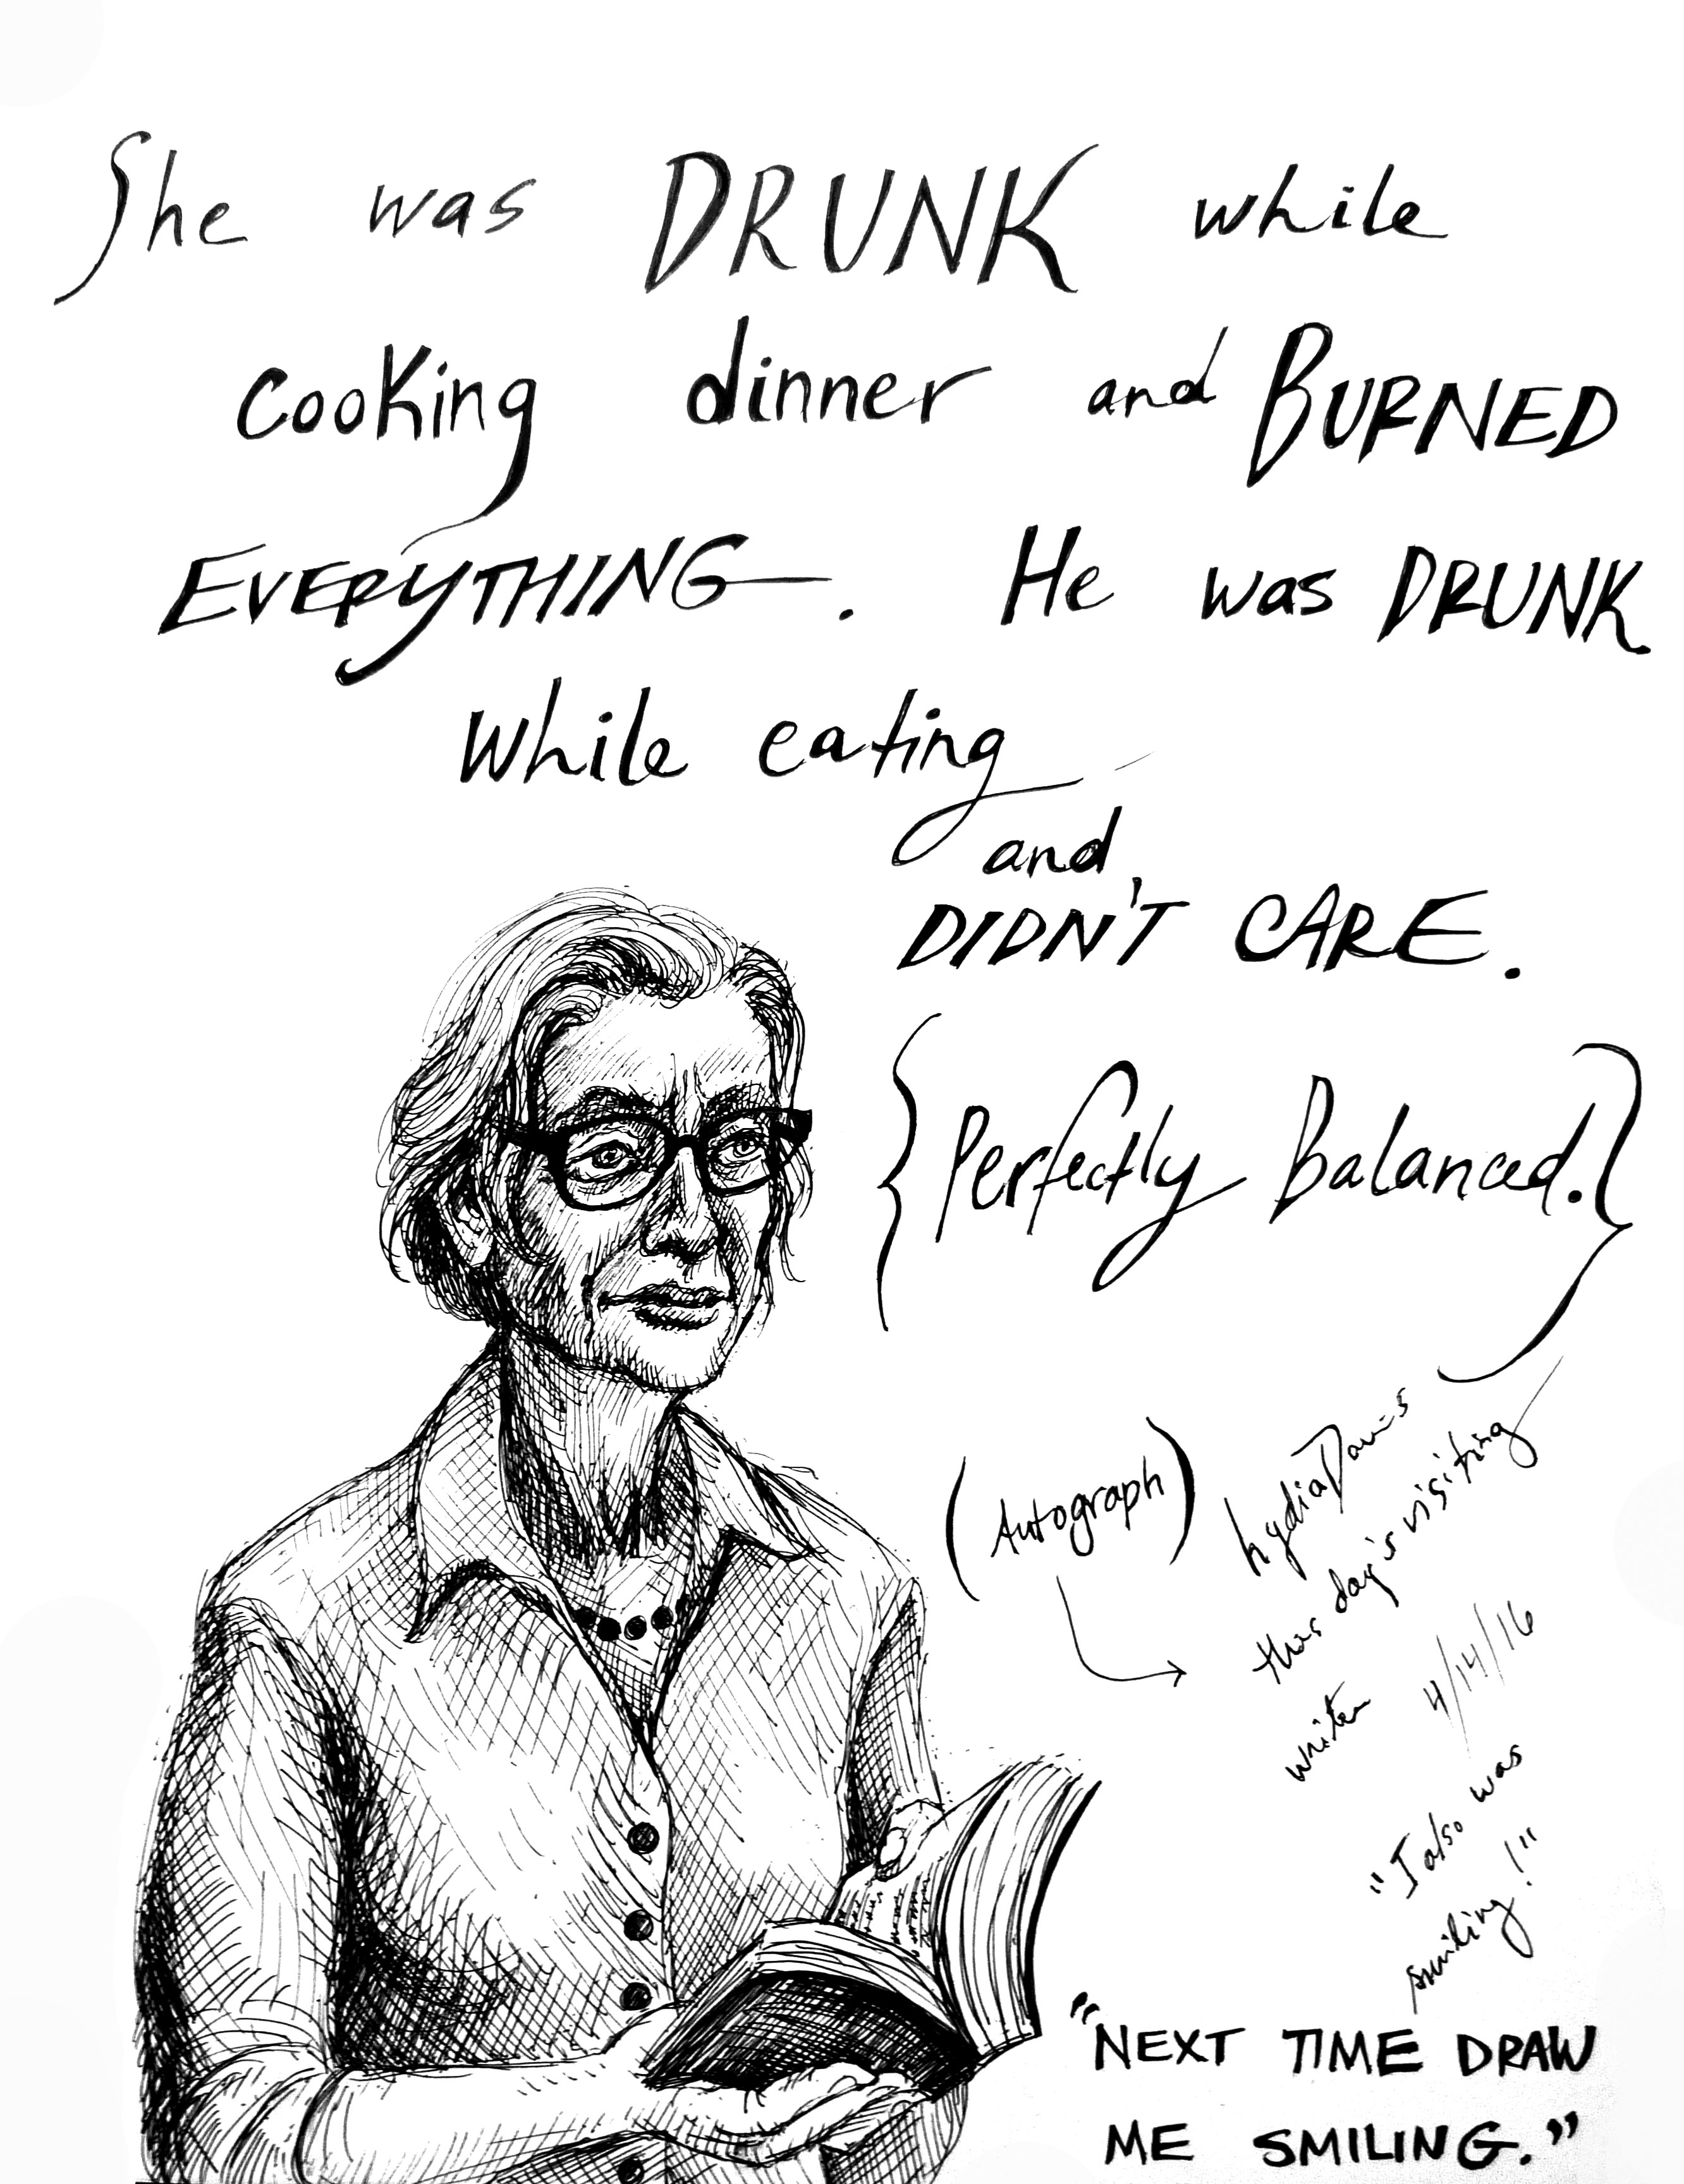 She was DRUNK while
cooking dinner and BURNED
EVERYTHING. He was DRUNK
while eating
and
DIDN'T CARE.
{Perfectly Balanced.}
(Autograph)
Lydia Davis
this day's visiting
writer 4/14/16
"I also was
smiling!"
"NEXT TIME DRAW
ME SMILING."